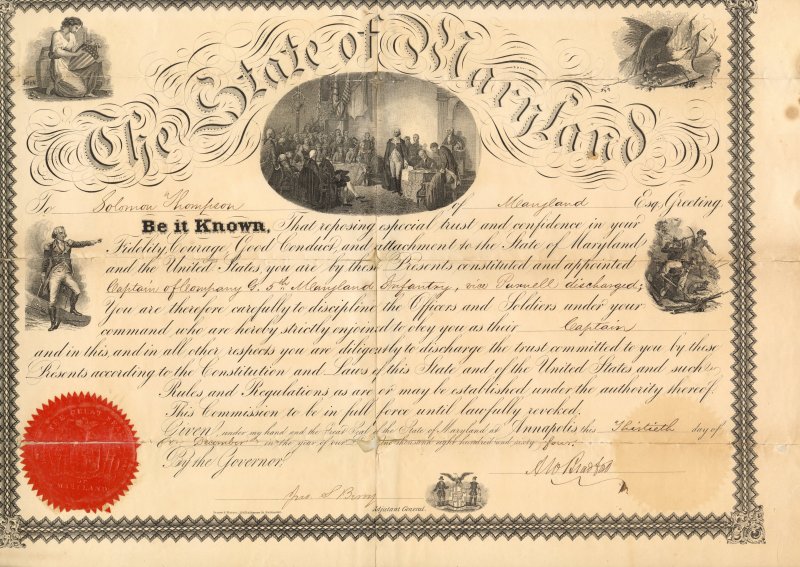 The State of Maryland
To Solomon Thompson of Maryland Esq, Greeting.
Be it Known, That reposing especial trust and confidence in your
Fidelity, Courage, Good Conduct, and attachment to the State of Maryland
and the United States, you are by these Presents constituted and appointed
Captain of Company G. 5th Maryland Infantry, vice Purnell discharged;
You are therefore carefully to discipline the Officers and Soldiers under your
command, who are hereby strictly enjoined to obey you as their Captain
and in this, and in all other respects you are diligently to discharge the trust committed to you by these
Presents according to the Constitution and Laws of this State and of the United States and such
Rules and Regulations as are or may be established under the authority thereof.
This Commission to be in full force until lawfully revoked.
Given, under my hand and the Great Seal of the State of Maryland at Annapolis this Thirtieth day of
December in the year of our one thousand eight hundred and sixty four.
By the Governor,
A W Bradford
Jno. S Berry
Adjutant General.
MARYLAND